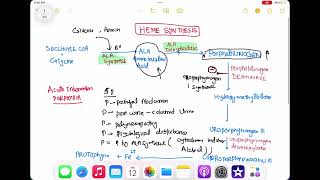 HEME SYNTHESIS
Glucose, Porin
SUCCINYL COA
+
Glycine
B6
ALA
Synthetase
ALA
Aminolevulinic
Acid
ALA
Dehydratase
PORPHOBILINOGEN
Uroporphyrinogen
I synthase
Porphobilinogen
DEAMINASE
Hydroxymethylbilane
Acute Intermittent
PORPHYRIA
5P
P = painful Abdomen
P = port wine - coloured Urine
P = polyneuropathy
P = Psychological disturbance
P = ↑ to ALA Synthase (Cytochrome inducer
Alcohol)
UROPORPHYRINOGEN III
Uroporphyrinogen
decarboxylase
Protoporphyrin + Fe 2+
COPROPORPHYRINOGEN III